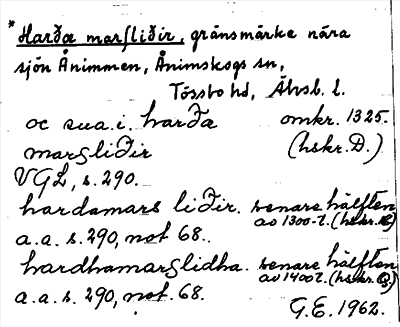 *Harða marsliðir, gränsmärke nära
sjön Ånimmen, Ånimskogs sn,
Tössbo hd, Älvsb. l.
oc sua.i. harða omkr. 1325.
marsliðir (hskr. D.)
VGL, s. 290.
hardamars liðir. senare hälften
av 1300-t. (hskr. E)
a.a. s. 290, not 68.
hardhamarslidha. senare hälften
av 1400 t. (hskr. G.)
a.a. s. 290, not. 68.
G.E. 1962.